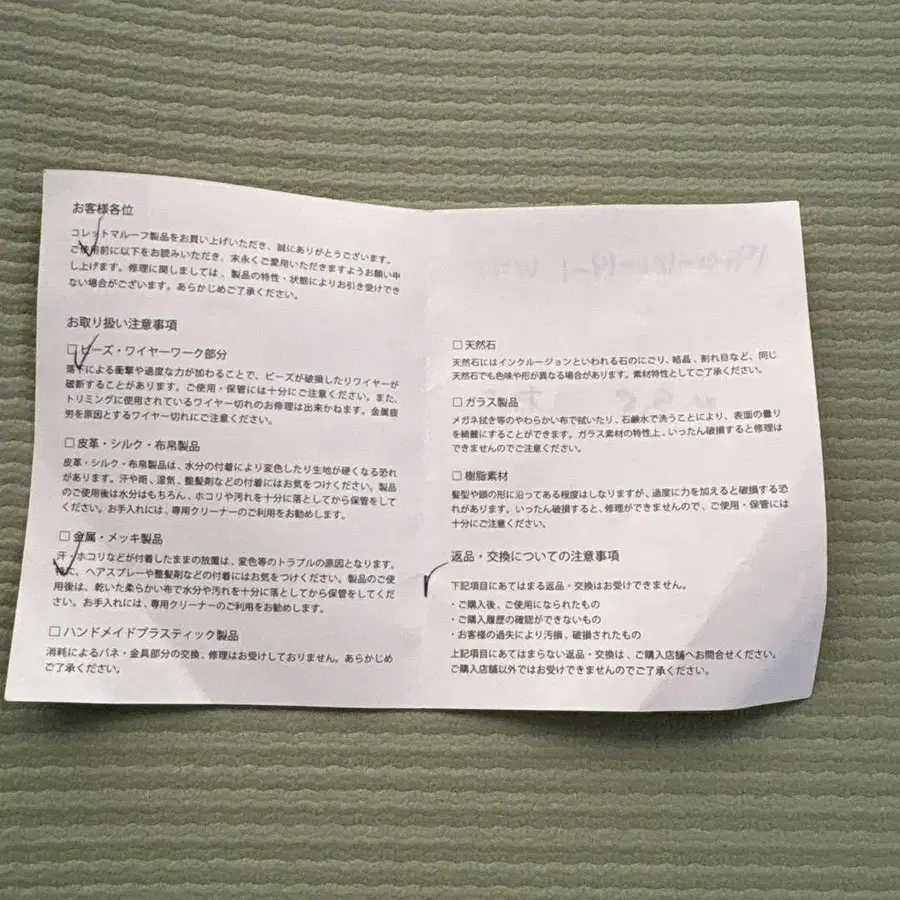 お客様各位
コレットマルーフ製品をお買い上げいただき、誠にありがとうございます。
ご使用前に以下をお読みいただき、末永くご愛用いただきますようお願い申
し上げます。修理に関しましては、製品の特性・状態によりお引き受けでき
ない場合がございます。あらかじめご了承ください。
お取り扱い注意事項
□ビーズ・ワイヤーワーク部分
落下による衝撃や過度な力が加わることで、ビーズが破損したりワイヤーが
破断することがあります。ご使用・保管には十分にご注意ください。また、
トリミングに使用されているワイヤー切れのお修理は出来かねます。金属疲
労を原因とするワイヤー切れにご注意ください。
□ 皮革・シルク・布帛製品
皮革・シルク・布帛製品は、水分の付着により変色したり生地が硬くなる恐れ
があります。汗や雨、湿気、整髪剤などの付着にはお気をつけください。製品
のご使用後は水分はもちろん、ホコリや汚れを十分に落としてから保管をして
ください。お手入れには、専用クリーナーのご利用をお勧めします。
□ 金属・メッキ製品
汗・ホコリなどが付着したままの放置は、変色等のトラブルの原因となります。
特に、ヘアスプレーや整髪剤などの付着にはお気をつけください。製品のご使
用後は、乾いた柔らかい布で水分や汚れを十分に落としてから保管をしてくだ
さい。お手入れには、専用クリーナーのご利用をお勧めします。
□ ハンドメイドプラスティック製品
消耗によるバネ・金具部分の交換、修理はお受けしておりません。あらかじめ
ご了承ください。
□ 天然石
天然石にはインクルージョンといわれる石のにごり、結晶、割れ目など、同じ
天然石でも色味や形が異なる場合があります。素材特性としてご了承ください。
□ ガラス製品
メガネ拭き等のやわらかい布で拭いたり、石鹸水で洗うことにより、表面の曇り
を綺麗にすることができます。ガラス素材の特性上、いったん破損すると修理は
できませんのでご注意ください。
□ 樹脂素材
髪型や頭の形に沿ってある程度はしなりますが、過度に力を加えると破損する恐
れがあります。いったん破損すると、修理ができませんので、ご使用・保管には
十分にご注意ください。
返品・交換についての注意事項
下記項目にあてはまる返品・交換はお受けできません。
・ご購入後、ご使用になられたもの
・ご購入履歴の確認ができないもの
・お客様の過失により汚損、破損されたもの
上記項目にあてはまらない返品・交換は、ご購入店舗へお問合せください。
ご購入店舗以外ではお受けできませんのでご了承ください。